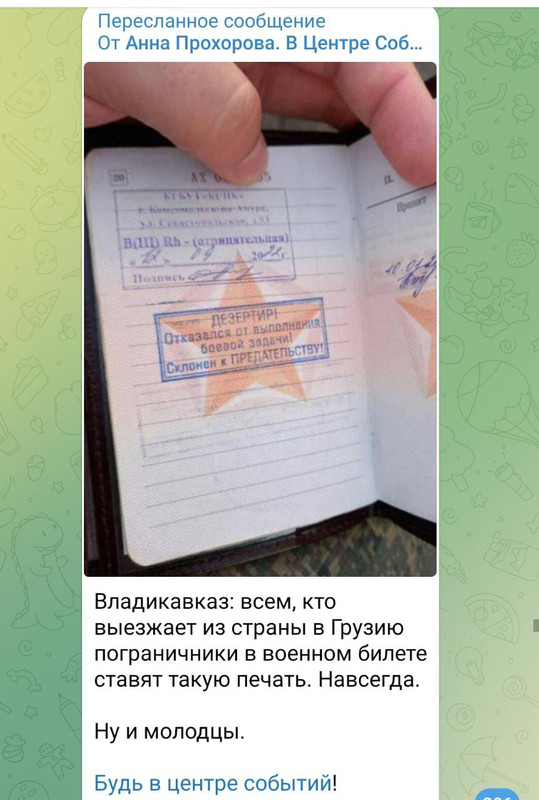 Пересланное сообщение
От Анна Прохорова. В Центре Соб...
20
АХ
г. Комсомольск-на-Амуре,
ул. Севастопольская, д.53
В(III) Rh - (отрицательная)
09
20
г
Подпись
Принят
ДЕЗЕРТИР!
Отказался от выполнения
боевой задачи!
Склонен к ПРЕДАТЕЛЬСТВУ!
Владикавказ: всем, кто
выезжает из страны в Грузию
пограничники в военном билете
ставят такую печать. Навсегда.
Ну и молодцы.
Будь в центре событий!